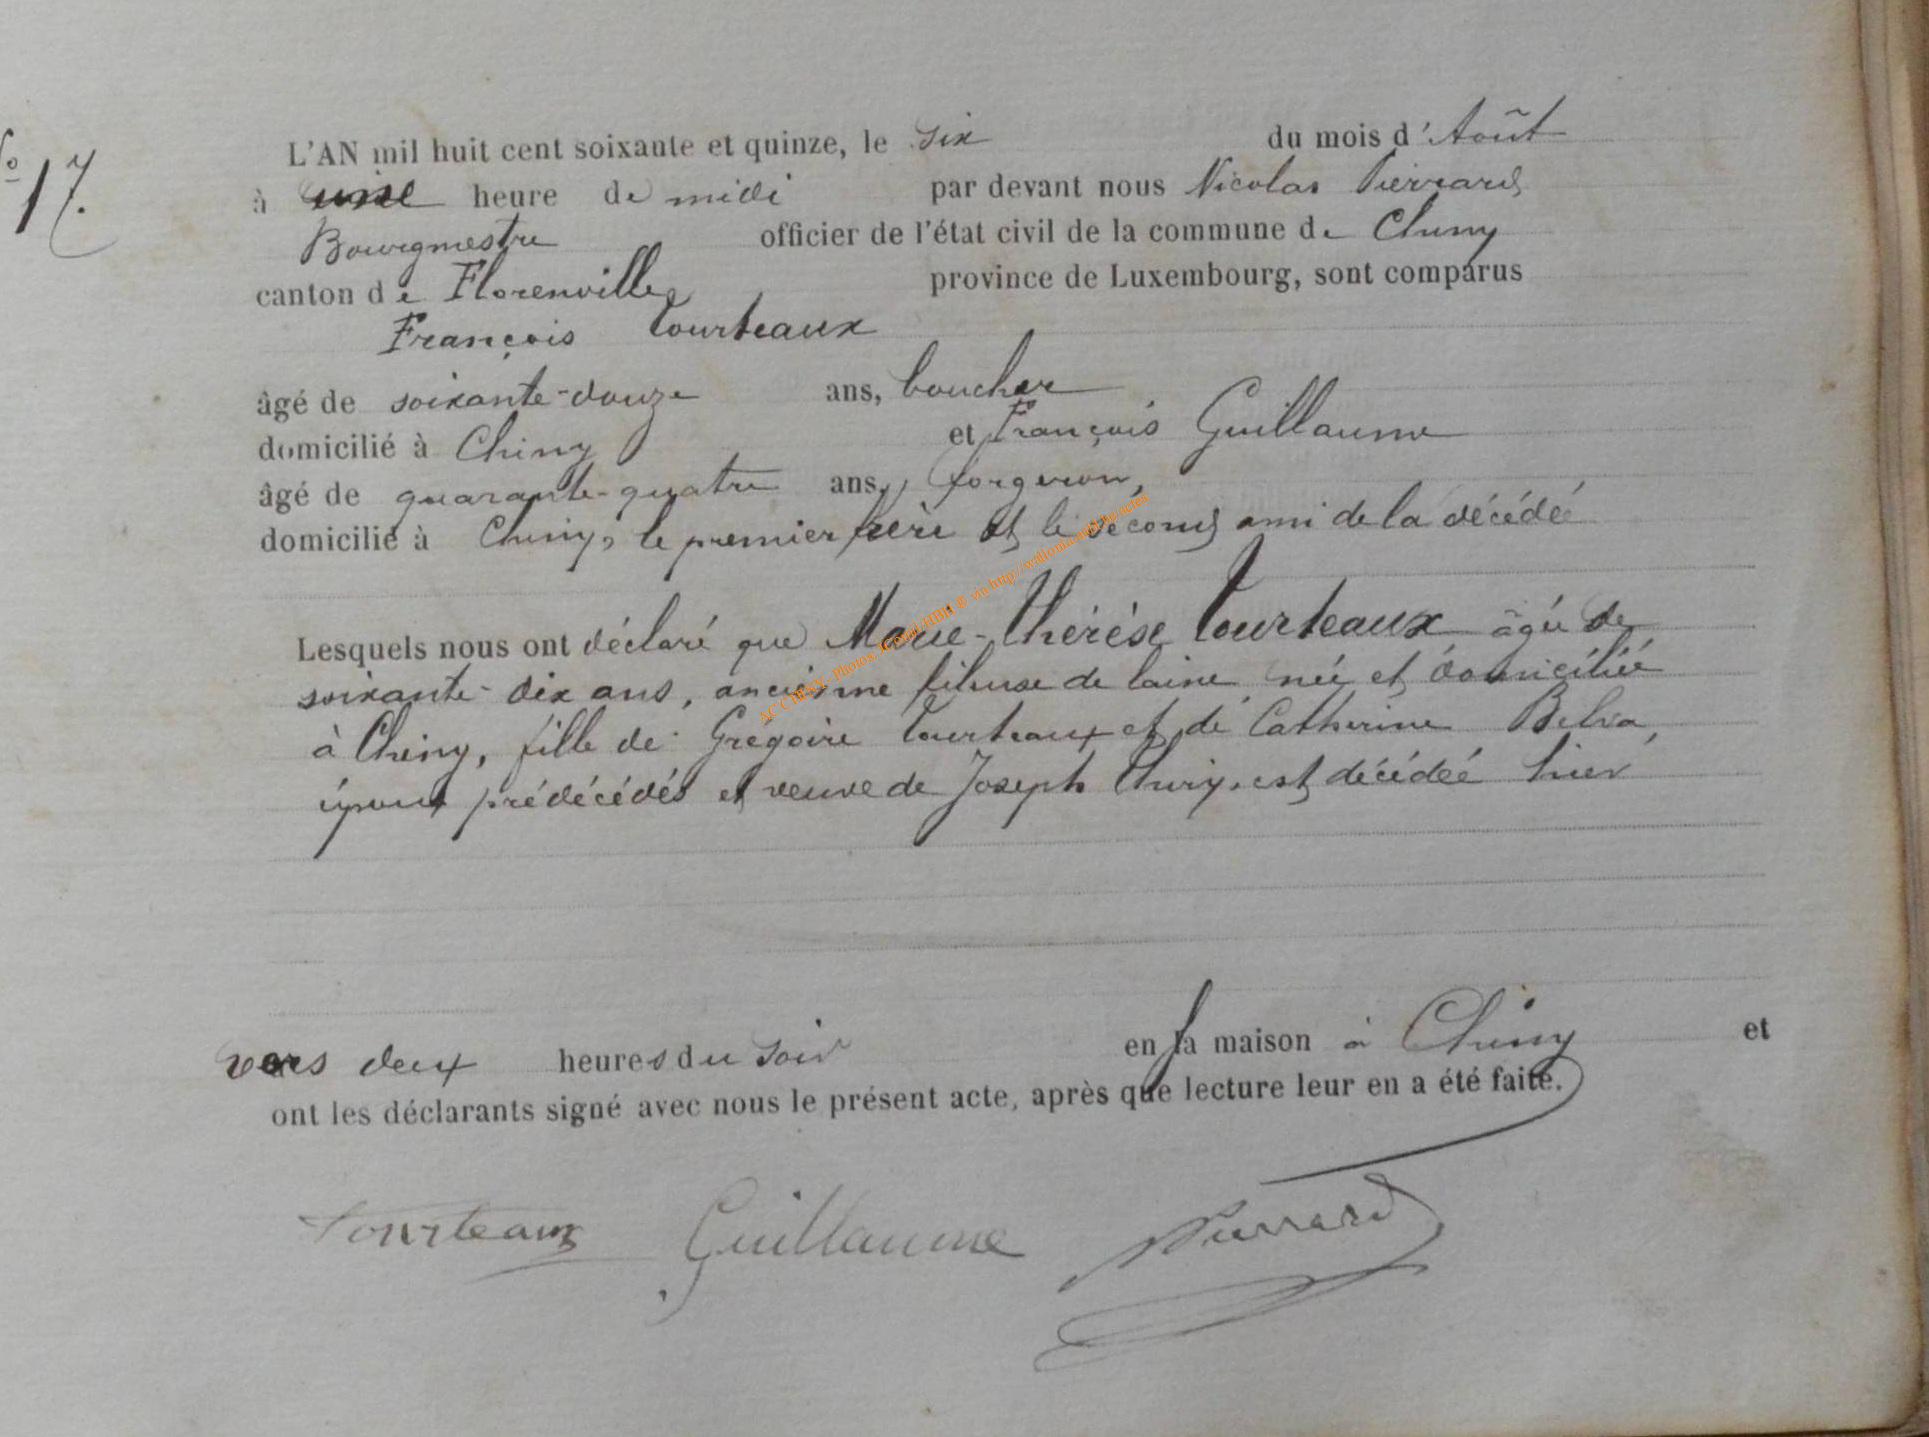 No 17.
L'AN mil huit cent soixante et quinze, le six du mois d'Août
à une heure de midi par devant nous Nicolas Pierrard
Bourgmestre officier de l'état civil de la commune de Chiny
canton de Florenville province de Luxembourg, sont comparus
François Tourteaux
âgé de soixante-douze ans, boucher
domicilié à Chiny et François Guillaume
âgé de quarante-quatre ans, forgeron,
domicilié à Chiny, le premier frère et le second ami de la décédée
Lesquels nous ont déclaré que Marie-Thérèse Tourteaux âgée de
soixante-dix ans, ancienne fileuse de laine née et domiciliée
à Chiny, fille de Grégoire Tourteaux et de Catherine
époux prédécédés et veuve de Joseph est décédée hier
vers deux heures du soir en sa maison à Chiny et
ont les déclarants signé avec nous le présent acte, après que lecture leur en a été faite.
Tourteaux Guillaume Pierrard